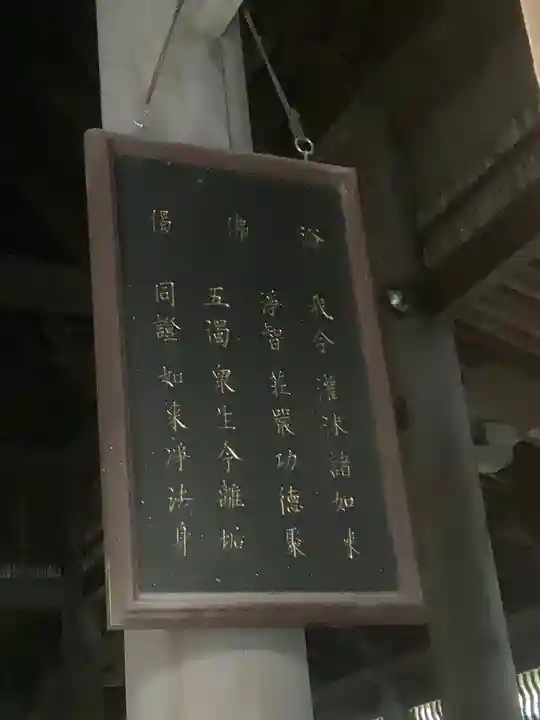 浴佛偈
我今灌沐諸如來
淨智莊嚴功德聚
五濁衆生令離垢
同證如來淨法身